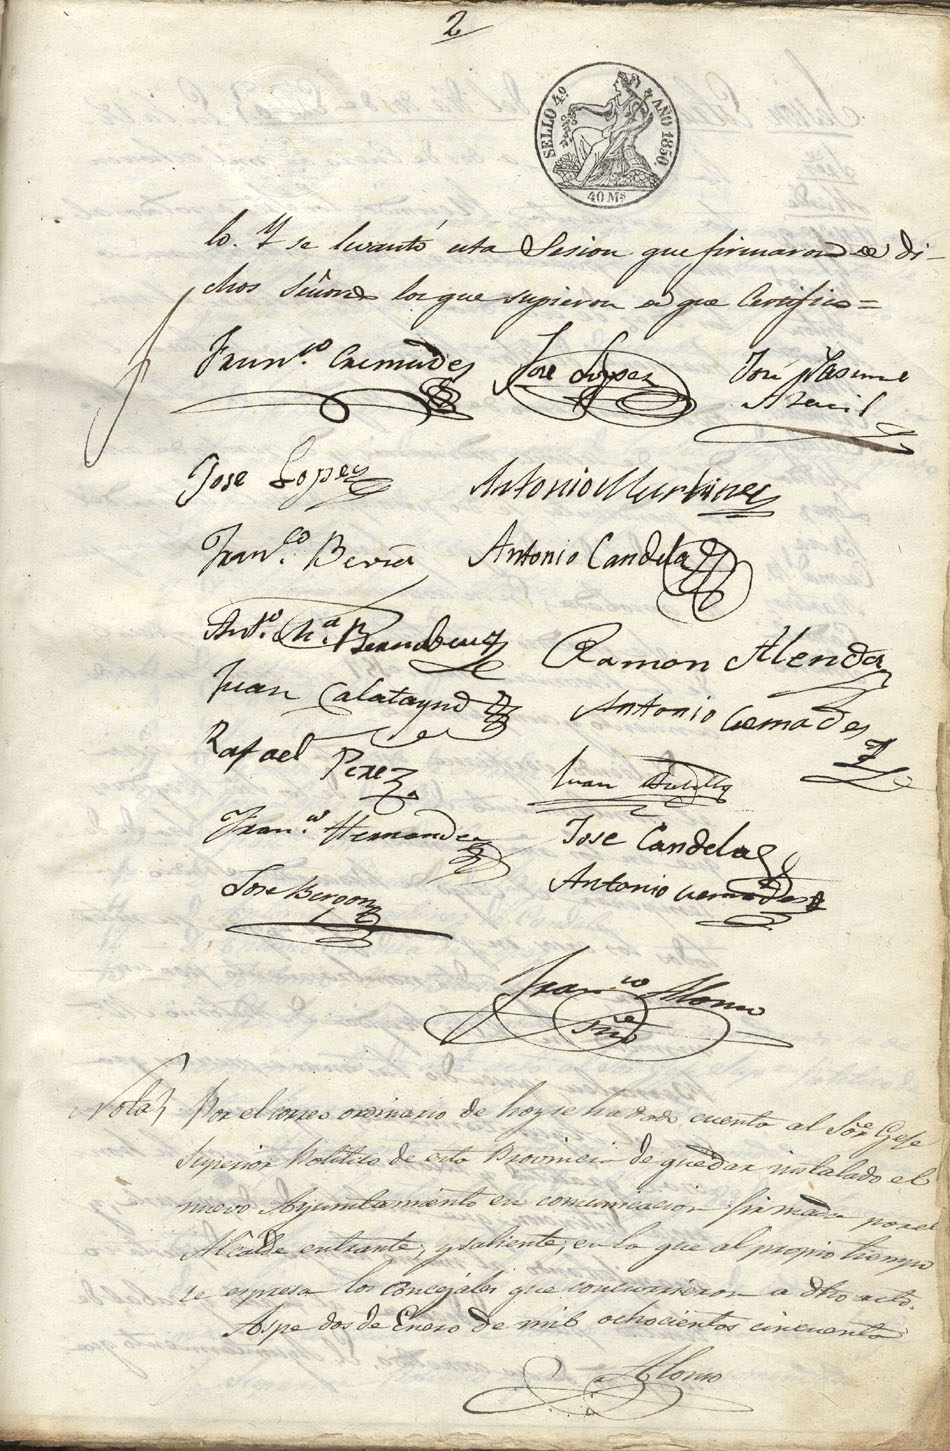 2
SELLO 4º AÑO 1850
40 Ms
lo. Y se levantó esta Sesion que firmaron de di-
chos Señores los que supieron de que Certifico =
Franco. Cremades José López José
Jose Lopez Antonio Martinez
Franco. Beviá Antonio Candela
Anto. Ma. Bernabeu Ramon Alenda
Juan Calatayud Antonio Cremades
Rafael Perez Juan
Franco. Hernandez Jose Candela
Jose Antonio Cremades
Franco Alonso
Srio
Nota Por el correo ordinario de hoy se ha dado cuenta al Sor. Gefe
Superior Politico de esta Provincia de quedar instalado el
nuevo Ayuntamiento en comunicacion firmada por el
Alcalde entrante, y saliente, en la que al propio tiempo
se espresa los Concejales que concurrieron a dho acto.
Aspe dos de Enero de mil ochocientos cincuenta
Alonso